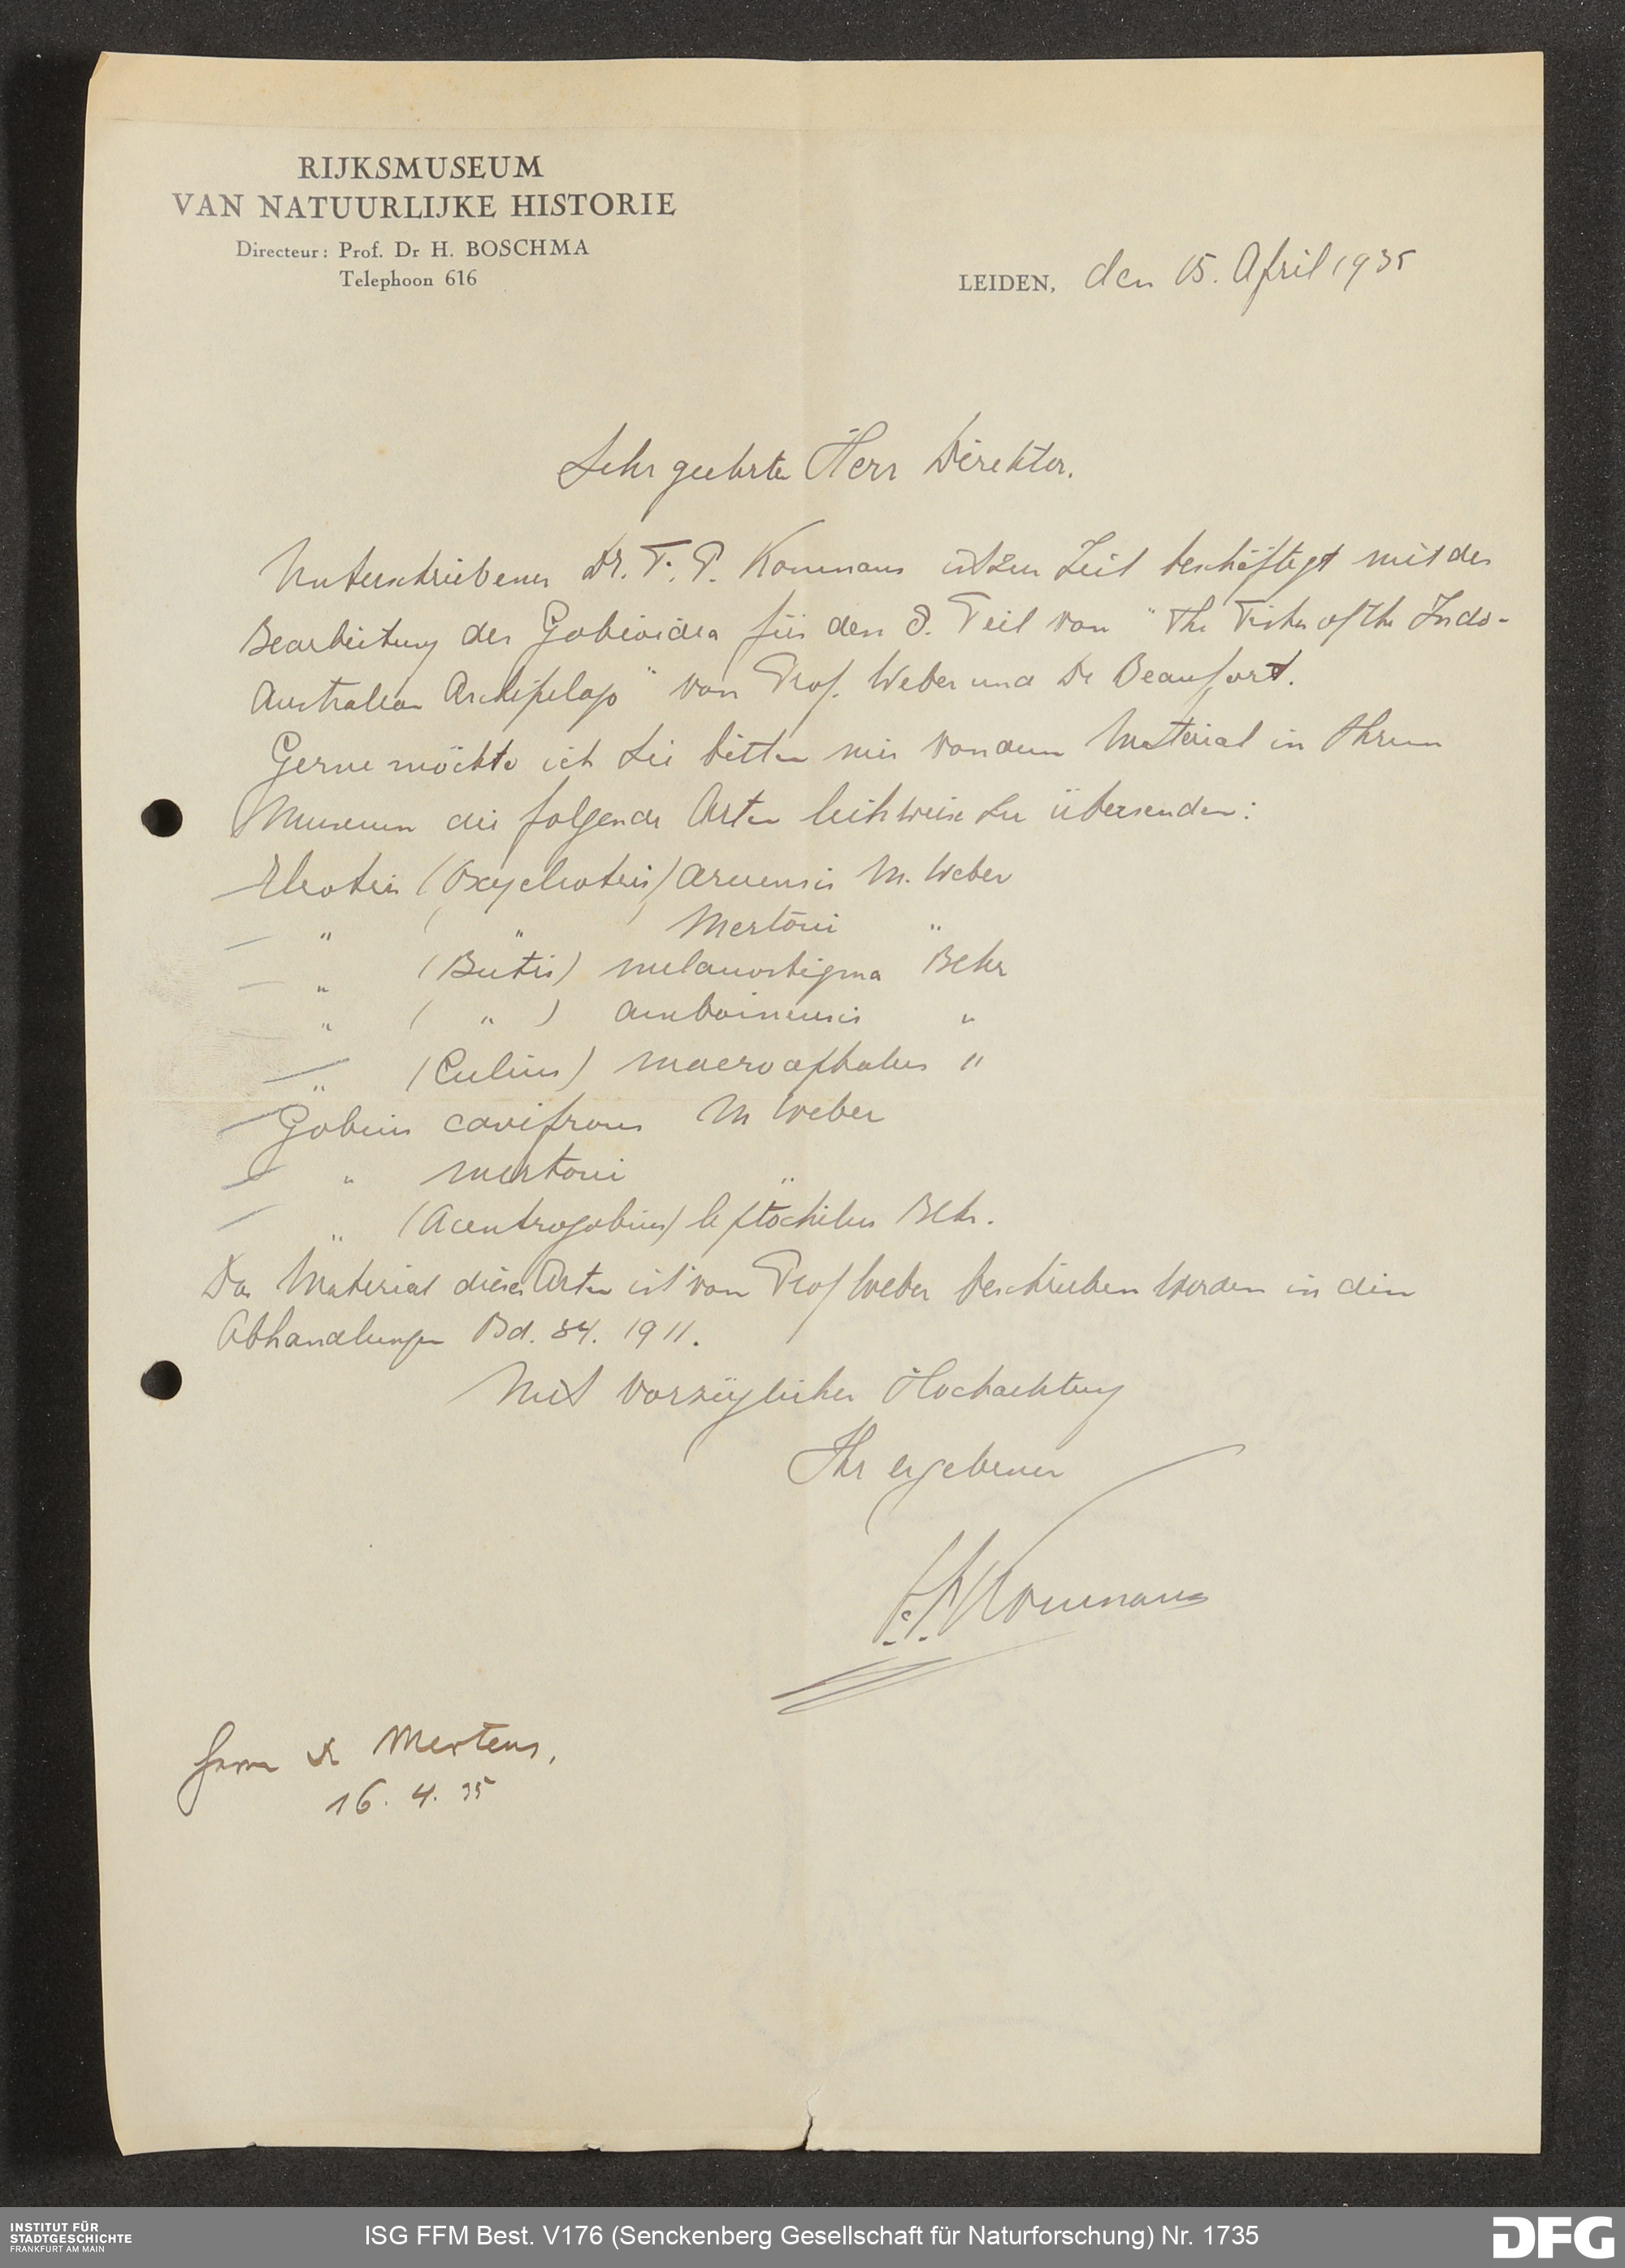 RIJKSMUSEUM
VAN NATUURLIJKE HISTORIE
Directeur: Prof. Dr H. BOSCHMA
Telephoon 616
LEIDEN, den 15. April 1935
Sehr geehrter Herr Direktor.
Unterschriebener Dr. F. P. Koumans ist zur Zeit beschäftigt mit der
Bearbeitung der Gobioidea für den 8. Teil von "The Fishes of the Indo-
Australian Archipelago" von Prof. Weber und De Beaufort.
Gerne möchte ich Sie bitten mir von dem Material in Ihrem
Museum die folgende Arten leihweise zu übersenden:
Eleotris (Oxyeleotris) aruensis M. Weber
" ( " ) Mertoni "
" (Butis) melanostigma Blkr
" ( " ) amboinensis "
" (Culius) macrocephalus "
Gobius cavifrons M Weber
" mertoni "
" (Acentrogobius) leptochilus Blkr.
Das Material dieser Arten ist von Prof Weber beschrieben worden in den
Abhandlungen Bd. 34. 1911.
Mit vorzüglicher Hochachtung
Ihr ergebener
F.P. Koumans
Herrn Dr Mertens,
16. 4. 35
INSTITUT FÜR
STADTGESCHICHTE
FRANKFURT AM MAIN
ISG FFM Best. V176 (Senckenberg Gesellschaft für Naturforschung) Nr. 1735
DFG